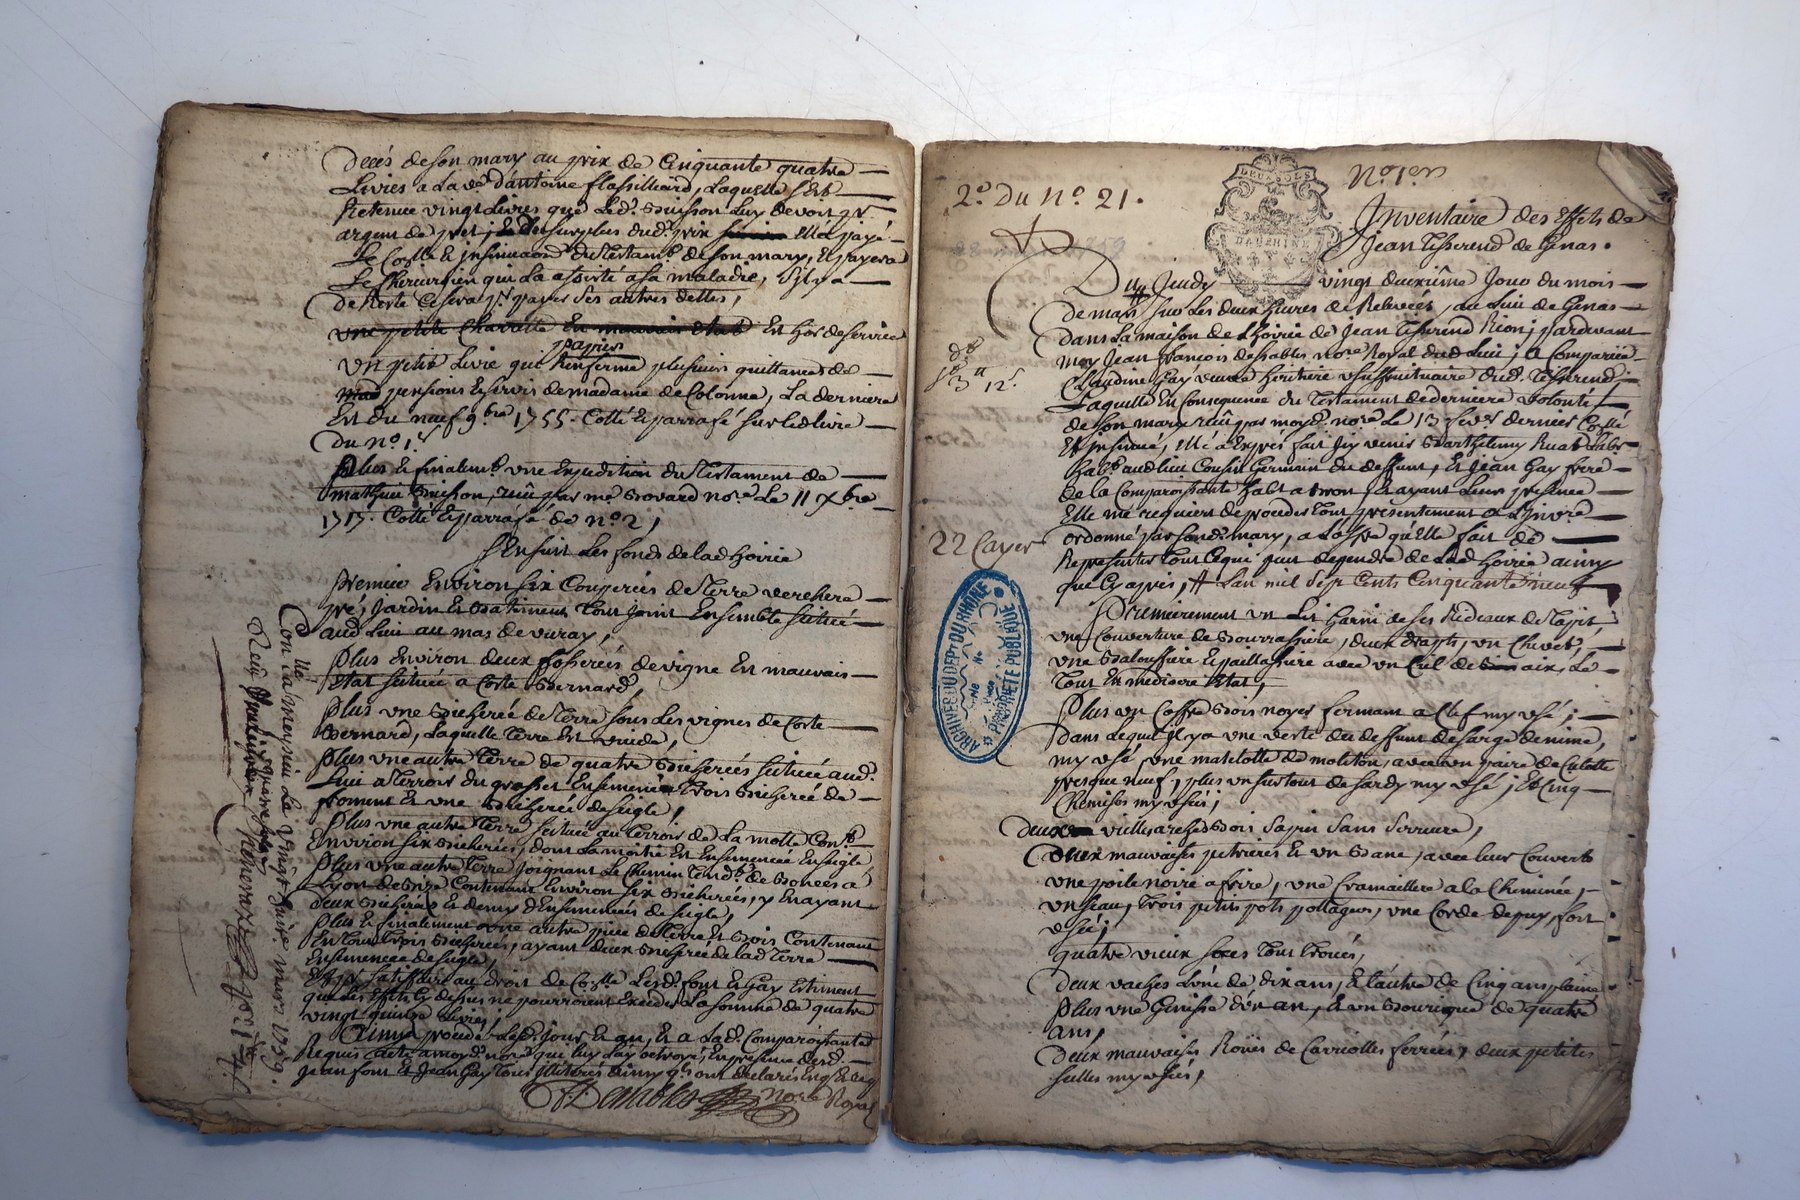 deces de son mary au prix de Cinquante quatre
Livres a La ve. d'antoine flassilliard, Laquelle s'Est
Retenue vingt Livres que Led. Buisson Luy devoit pr.
argent de pret; Et du surplus dud. prix Elle a payé
Le Collé & insinuaon du Testamt. de son mary, Et payera
Le Chirurgien qui La assisté a sa maladie, S'il y a
de Reste Ce sera pr. payer Ses autres dettes,
une petite Charrette En mauvais état Et hors de service
papier
un petit Livre qui Renferme plusieurs quittances de
pensions Et servis de madame de Colonne, La derniere
Est du neuf 9bre 1755. Cotté Et parrafé sur led. livre
du no. 1er
Plus Et finalemt. une Expedition du Testament de
mathieu Buisson, reçu par me Bovard nore. Le 11 xbre
1717. Cotté Et parrafé de no. 2,
S'Ensuit Les fonds de lad. hoirie
premier Environ six Couperées de Terre verchere
pré, Jardin Et Batiment Tout Joint Ensemble scitué
aud. Lieu au mas de vuray,
Plus Environ deux fosserées de vigne En mauvais
Etat scituée a Coste Bernard,
Plus une Bicherée de Terre sous Les vignes de Coste
Bernard, Laquelle Terre Est vuide,
Plus une autre Terre de quatre Bicherées scituée aud.
Lieu a Terroir du grosset Ensemencé Trois Bicherée de
froment Et une Bicherée de seigle,
Plus une autre Terre scituée au Terroir de La motte Cont.
Environ six Bicherées, dont La moitié Est Ensemencée En seigle
Plus une autre Terre Joignant Le Chemin Tendt. de
Lyon Contenant Environ six Bicherées, y En ayant
deux Bicherées Et demy d'Ensemencées de seigle,
Plus Et finalement une autre piece de Terre Et Bois Contenant
En Tout Trois Bicherées, ayant deux Bicherée de lad. Terre
Ensemencée de seigle,
Et pr. satisfaire au droit de Colle. Lesd. font Et Gay Estiment
que Les Effets Cy dessus ne pourroient Exceder La somme de quatre
vingt quinze Livres;
Ainsy procédé Lesd. Jour, Et an, Et a Lad. Comparoissante
Requis acte a moyd. nore. que luy L'ay octroyé, En presence desd.
Jean font Et Jean Gay Tous illiterés ainsy qu'ont declarés Enquis Et req.
Desables Nore Royal
Conlle. a meysieu Le vingt huit mars 1759.
Reçu
2o. Du No. 21.
DEUX SOLS
DAUPHINE
No. 1er
Inventaire des Effets de
Jean Tisserend de Genas.
Du Jeudy vingt deuxième Jour du mois
de mars sur Les deux heures de Relevées, au Lieu de Genas
dans La maison de L'hoirie de Jean Tisserend Rion; pardevant
moy Jean françois desables nore. Royal dud. Lieu; a Comparüe
3tt 12s.
Claudine Gay veuve heritiere usuffruituaire dud. Tisserend;
Laquelle En Consequence du Testament de derniere volonté
de son mary reçu par moyd. nore. Le 13 fevr. dernier Collé
Et insinué, Elle a Exprés fait Icy venir Barthelemy Ruat Labr.
habt. aud. lieu Cousin Germain du deffunt, Et Jean Gay frere
de la Comparoissante habt. a Bron, Et ayant Leur presence
Elle me requiert de proceder Tout presentement a L'Invre.
22 Cayer
ordonné par sond. mary, a L'offre qu'Elle fait de
Representer Tout Ce qui peut dependre de Lad. hoirie ainsy
que Cy apprés, # L'an mil sept Cents Cinquante neuf
Premierement un Lit Garni de ses Rideaux de Tapis
une Couverture de Bourrassiere, deux draps, un Chevet,
une Baloussiere Et paillassiere avec un Ciel de Lé
Tout En mediocre Etat,
Plus un Coffre Bois noyer fermant a Clef my usé;
dans Lequel Il y a une veste du deffunt de sarge de nime,
my usé, une matelotte de moleton, avec un paire de Culotte
presque neuf, plus un surtout de sardy my usé; Et Cinq
Chemises my usées;
deux vieilles arches Bois sapin sans serrure,
deux mauvaises petrieres Et un Banc, avec leur Couverts
une poile noire a frire, une Cramailliere a la Cheminée,
un seau, Trois petits pots potagers, une Corde de puy fort
usée;
quatre vieux sacs Tout Troués,
Deux vaches L'une de dix ans, Et L'autre de Cinq ans pleine
Plus une Genisse d'un an, Et un Bourrique de quatre
ans,
Deux mauvaises Roües de Carriolles ferrées, deux petites
selles my usées,
ARCHIVES DU DEPT DU RHONE
PROPRIETE PUBLIQUE